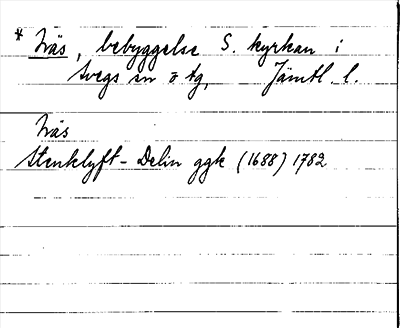 * Näs, bebyggelse S. kyrkan i
Svegs sn o tg, Jämtl. l.
Näs
Stenklyft-Delin ggk (1688) 1782